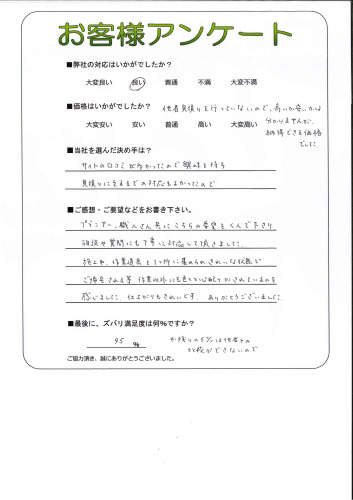 お客様アンケート
■弊社の対応はいかがでしたか？
大変良い 良い 普通 不満 大変不満
■価格はいかがでしたか？ 他者見積りを行っていないので、高いか安いかは
分かりませんが、
大変安い 安い 普通 高い 大変高い
納得できる価格
でした。
■当社を選んだ決め手は？
サイトの口コミが良かったので興味を持ち
見積りに来るまでの対応もよかったので
■ご感想・ご要望などをお書き下さい。
プランナー、職人さん共にこちらの希望をくんで下さり
相談や質問にも丁寧に対応して頂きました。
施工中、作業道具を1ヶ所に集められきれいな状態で
ご帰宅される等 作業以外にも
されているのを
感じました。仕上がりもきれいです。ありがとうございました。
■最後に、ズバリ満足度は何％ですか？
95 %
の5%は他者との
比較ができないので
ご協力頂き、誠にありがとうございました。